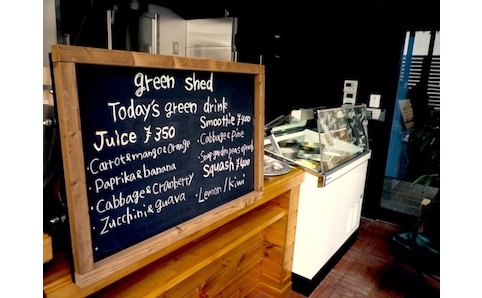 green shed
Today's green drink
Juice ¥350
·Carrot&mango&Orange
·Paprika&banana
·Cabbage&Cranberry
·Zucchini&guava
Smoothie ¥500
·Cabbage&Pine
Squash ¥400
·Lemon/Kiwi